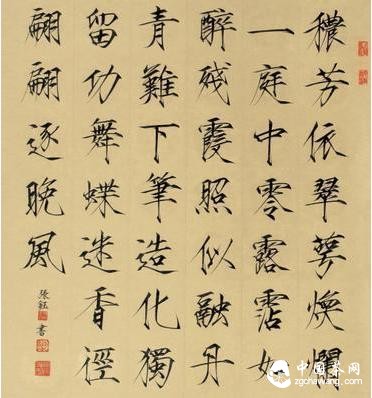 穠芳依翠萼煥爛
一庭中零露霑如
醉殘霞照似融丹
青難下筆造化獨
留功舞蝶迷香徑
翩翩逐晚風
張鈺書
中国茶网
zgchawang.com